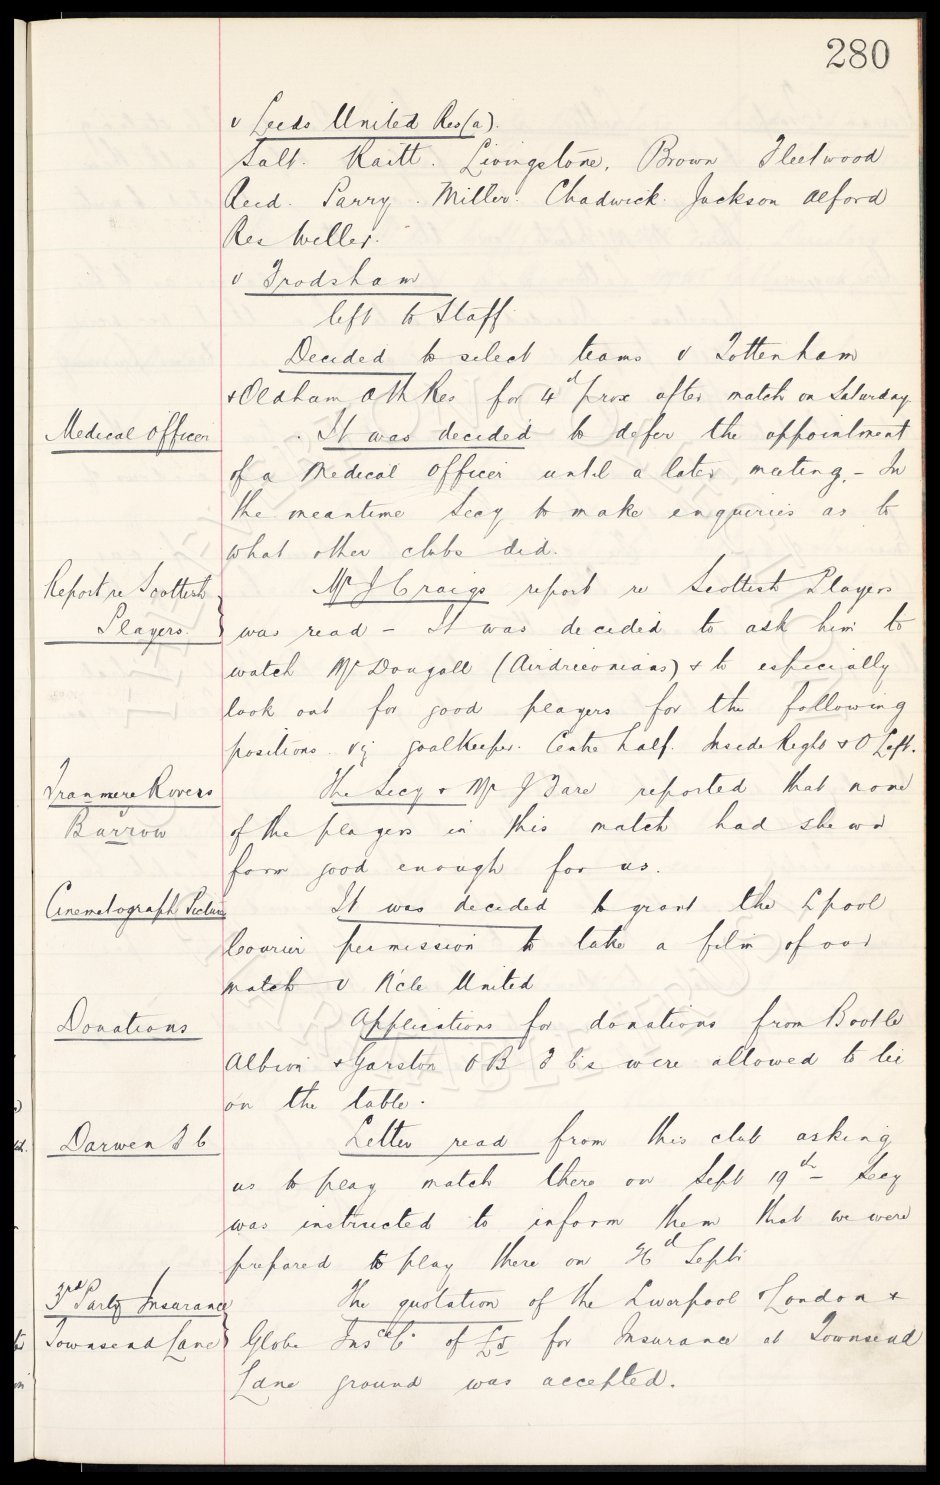 280
v Leeds United Res(a).
Salt. Raitt. Livingstone. Brown Fleetwood
Reid. Parry. Miller. Chadwick. Jackson Alford
Res Weller.
v Frodsham
left to Staff.
Decided to select teams v Tottenham
& Oldham Ath Res for 4th prox after match on Saturday
Medical Officer
. It was decided to defer the appointment
of a Medical Officer until a later meeting. – In
the meantime Secy to make enquiries as to
what other clubs did.
Report re Scottish
Players.
Mr J Craigs report re Scottish Players
was read – It was decided to ask him to
watch McDougall (Airdrieonians) & to especially
look out for good players for the following
positions viz goalkeeper. Centre half. Inside Right & O Left.
Tranmere Rovers
Barrow
The Secy & Mr J Fare reported that none
of the players in this match had shewn
form good enough for us.
Cinematograph Picture
It was decided to grant the Lpool
Courier permission to take a film of our
match v N'cle United
Donations
Applications for donations from Bootle
Albion & Garston O B F Cs were allowed to lie
on the table.
Darwen F C
Letter read from this club asking
us to play match there on Sept 19th – Secy
was instructed to inform them that we were
prepared to play there on 26th Septr
3rd Party Insurance
Townsend Lane
The quotation of the Liverpool London &
Globe Insce Co of for Insurance at Townsend
Lane ground was accepted.